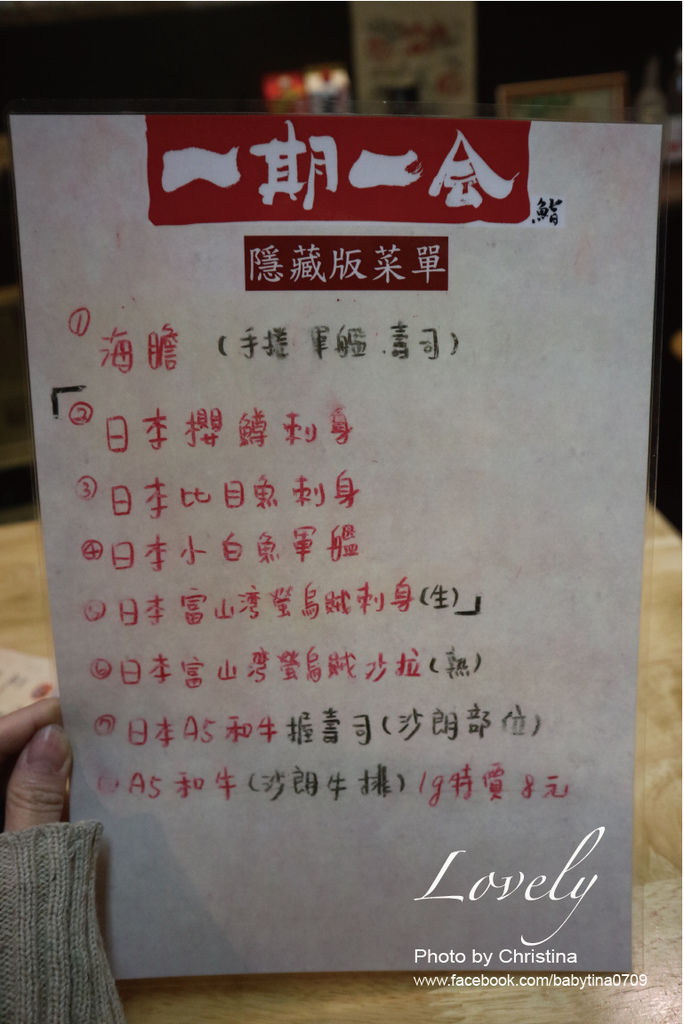 一期一会
鮨
隱藏版菜單
① 海膽 (手捲 軍艦 壽司)
「② 日本櫻鱒刺身
③ 日本比目魚刺身
④ 日本小白魚軍艦
⑤ 日本富山湾螢烏賊刺身(生)」
⑥ 日本富山湾螢烏賊沙拉(熟)
⑦ 日本A5和牛握壽司(沙朗部位)
A5和牛(沙朗牛排) 1g特價8元
Lovely
Photo by Christina
www.facebook.com/babytina0709